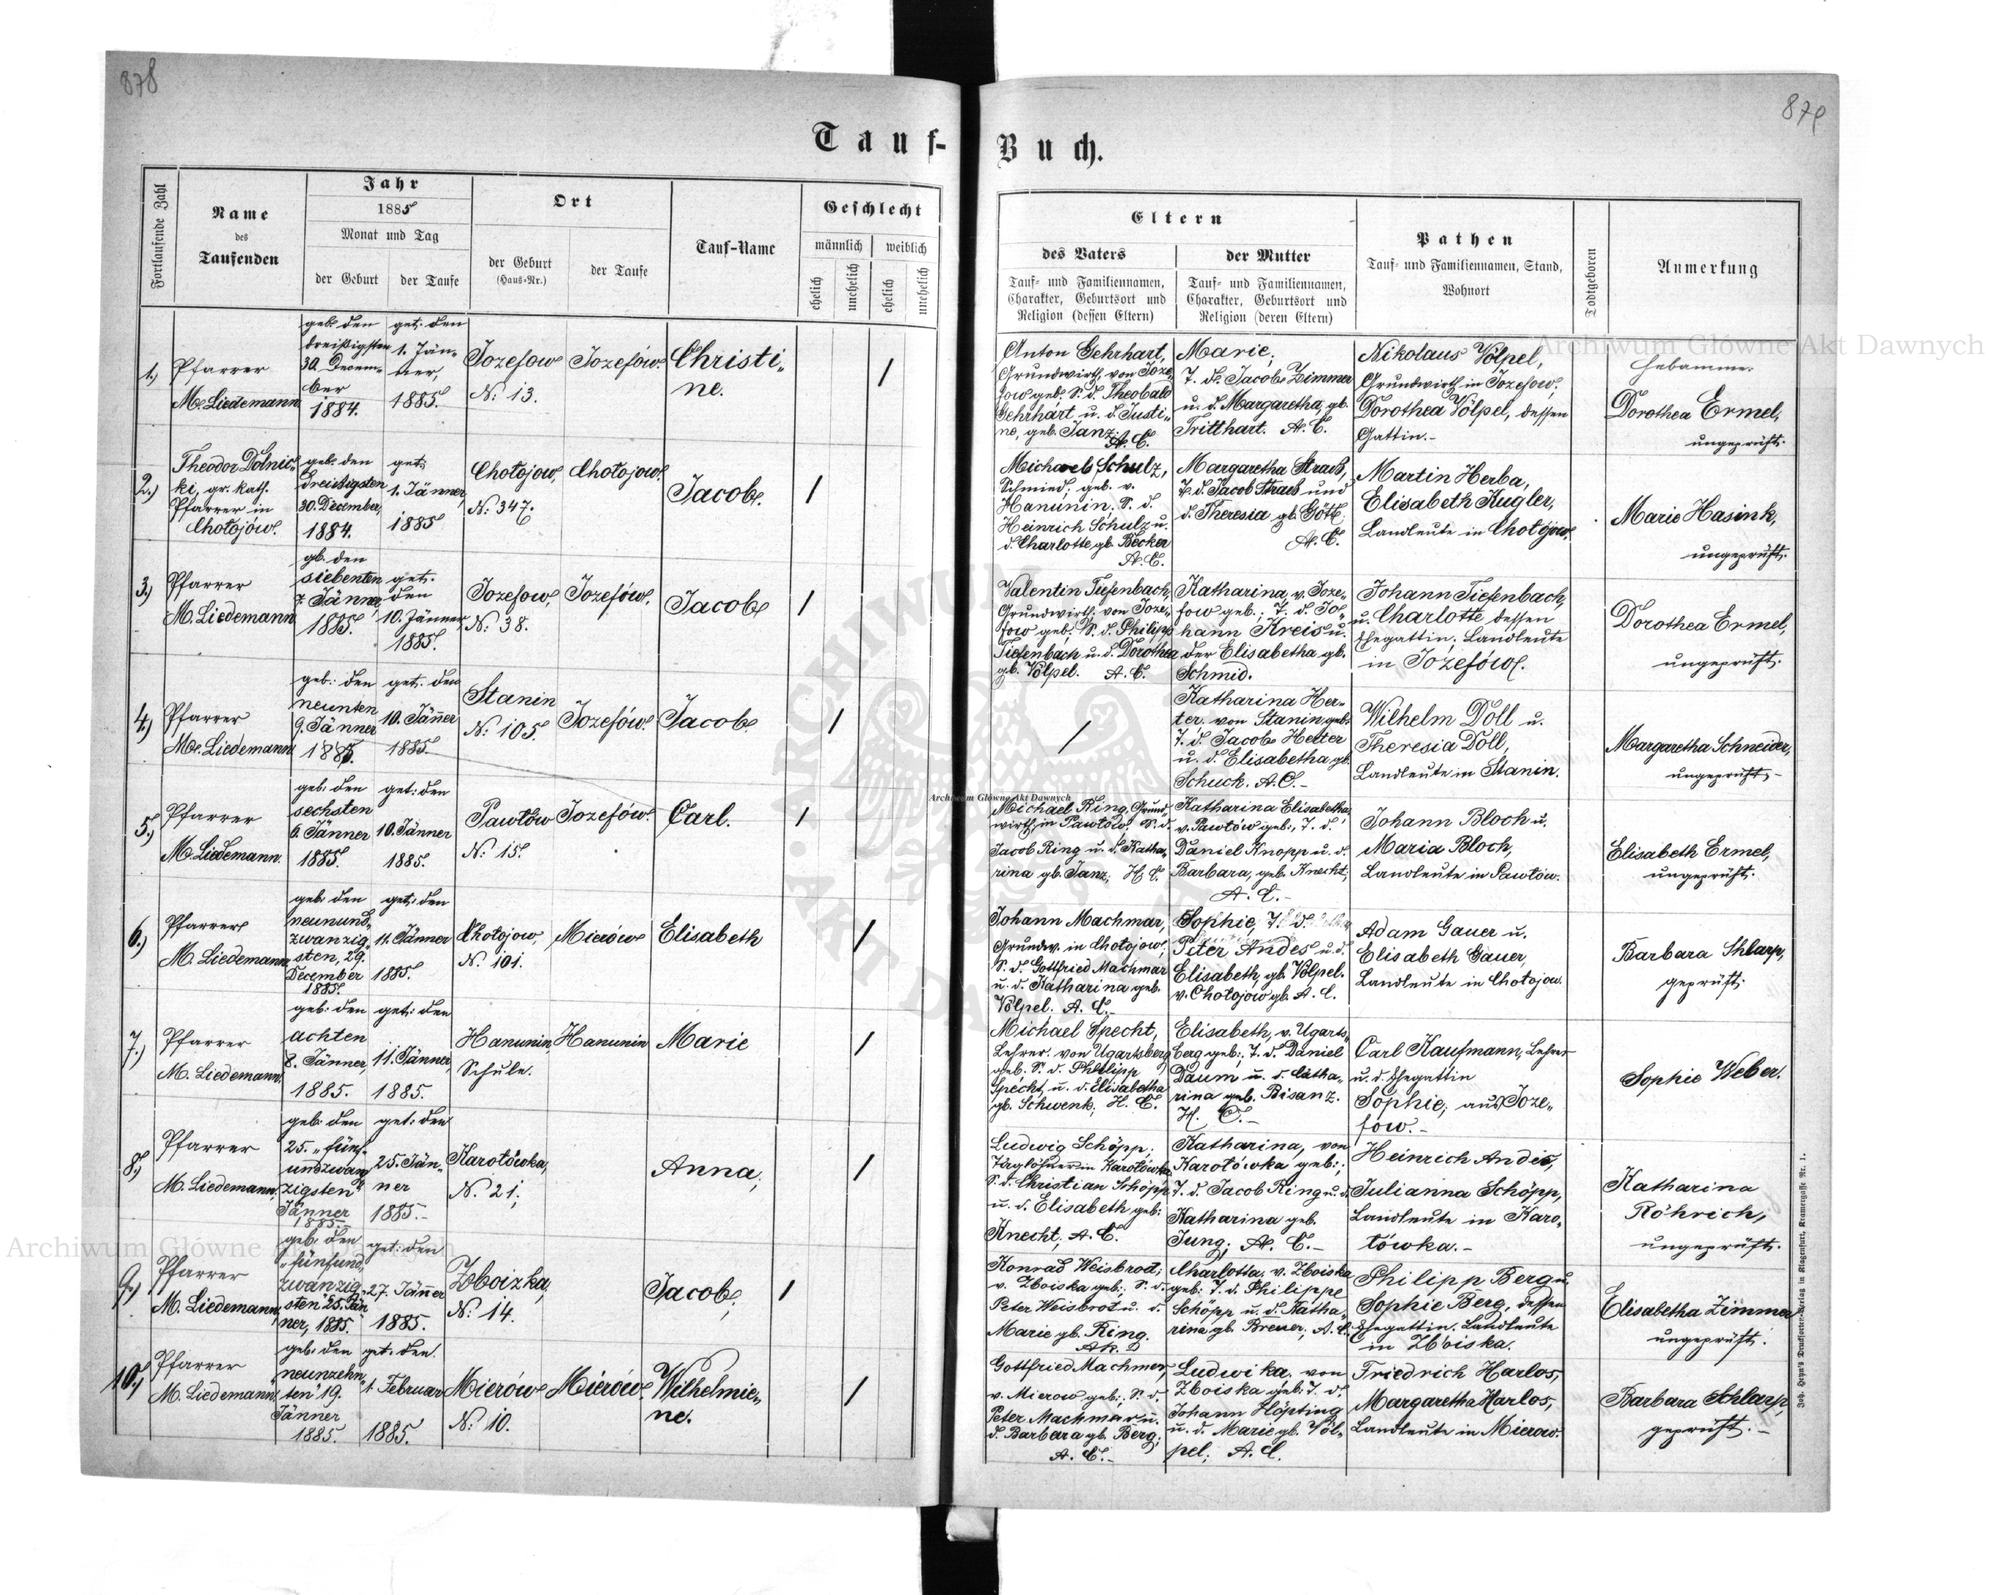 878
879
Tauf-Buch.
Fortlaufende Zahl
Name
des
Taufenden
Jahr
1885
Monat und Tag
der Geburt
der Taufe
Ort
der Geburt
(Haus-Nr.)
der Taufe
Tauf-Name
Geschlecht
männlich
weiblich
ehelich
unehelich
ehelich
unehelich
Eltern
des Vaters
Tauf- und Familiennamen,
Charakter, Geburtsort und
Religion (dessen Eltern)
der Mutter
Tauf- und Familiennamen,
Charakter, Geburtsort und
Religion (deren Eltern)
Pathen
Tauf- und Familiennamen, Stand,
Wohnort
Todtgeboren
Anmerkung
1.)
Pfarrer
M. Liedemann
geb. den
dreißigsten
30. Decem-
ber
1884.
get. den
1. Jän-
ner,
1885.
Jozefow
N: 13.
Jozefów.
Christi-
ne.
/
Anton Gehrhart,
Grundwirth von Joze-
fow geb. S. d. Theobald
Gehrhart u. d. Justi-
ne, geb. Janz. A. C.
Marie,
T. d. Jacob Zimmer
u. d. Margaretha, gb.
Tritthart. A. C.
Nikolaus Völpel,
Grundwirth in Jozefow,
Dorothea Völpel, dessen
Gattin.-
Hebamme.
Dorothea Ermel,
ungeprüft.
2.)
Theodor Dolnic-
ki, gr. kath.
Pfarrer in
Chołojów.
geb. den
dreißigsten
30. December,
1884.
get.
1. Jänner,
1885
Chołojow,
N: 347.
Chołojow.
Jacob.
/
Michael Schulz,
Schmied, geb. v.
Hanunin, S. d.
Heinrich Schulz u.
d. Charlotte gb. Becker
A. C.
Margaretha Strauß,
T. d. Jacob Strauß und
d. Theresia gb. Götz
A. C.
Martin Herba,
Elisabeth Kugler,
Landleute in Chołojow.
Marie Hasink,
ungeprüft.
3.)
Pfarrer
M. Liedemann
gb. den
siebenten
7. Jänner,
1885.
get.
den
10. Jänner,
1885.
Jozefow,
N: 38.
Jozefów.
Jacob
/
Valentin Tiefenbach,
Grundwirth von Joze-
fow geb. S. d. Philipp
Tiefenbach u. d. Dorothea
gb. Völpel. A. C.
Katharina v. Joze-
fow geb., T. d. Jo-
hann Kreis u.
der Elisabetha gb.
Schmid.
Johann Tiefenbach,
u. Charlotte dessen
Ehegattin. Landleute
in Józefów.
Dorothea Ermel,
ungeprüft.
4.)
Pfarrer
M. Liedemann
geb: den
neunten
9. Jänner
1885.
get. den
10. Jänner
1885.
Stanin
N: 105.
Jozefów.
Jacob
/
/
Katharina Her-
ter. von Stanin geb.
T. d. Jacob Herter
u. d. Elisabetha gb.
Schuck. A. C.-
Wilhelm Doll u.
Theresia Doll,
Landleute in Stanin.
Margaretha Schneider,
ungeprüft.-
5.)
Pfarrer
M. Liedemann.
geb. den
sechsten
6. Jänner
1885.
get: den
10. Jänner
1885.
Pawłów
N: 15.
Jozefów.
Carl.
/
Michael Ring, Grund-
wirth in Pawłów. S. d.
Jacob Ring u. d. Katha-
rina gb. Janz, H. C.
Katharina Elisabetha,
v. Pawłów geb., T. d.
Daniel Knopp u. d.
Barbara, geb. Knecht,
A. C.-
Johann Bloch u.
Maria Bloch,
Landleute in Pawłow.
Elisabeth Ermel,
ungeprüft.
6.)
Pfarrer
M. Liedemann
geb: den
neunund-
zwanzig-
sten, 29.
December
1885.
get: den
11. Jänner
1885.
Chołojow,
N. 101.
Mierów
Elisabeth
/
Johann Machmar,
Grundw. in Chołojow,
S. d. Gottfried Machmar
u. d. Katharina geb.
Völpel. A. C.-
Sophie, T. d.
Peter Andes u. d.
Elisabeth, gb. Völpel.
v. Chołojow gb. A. C.
Adam Gauer u.
Elisabeth Gauer,
Landleute in Chołojow.
Barbara Schlarp,
geprüft.
7.)
Pfarrer
M. Liedemann.
geb: den
achten
8. Jänner,
1885.
get: den
11. Jänner,
1885.
Hanunin,
Schule.
Hanunin
Marie
/
Michael Specht,
Lehrer. von Ugartsberg
geb. S. d. Philipp
Specht u. d. Elisabetha
gb. Schwenk, H. C.
Elisabeth, v. Ugarts-
berg geb., T. d. Daniel
Daum u. d. Catha-
rina geb. Bisanz.
H. C.-
Carl Kaufmann, Lehrer
u. d. Ehegattin
Sophie, aus Joze-
fow.-
Sophie Weber.
8.)
Pfarrer
M. Liedemann.
geb: den
25. „fünf-
undzwan-
zigsten"
Jänner
1885.
get: den
25. Jän-
ner
1885.-
Karołówka,
N. 21,
Anna,
/
Ludwig Schöpp,
Taglöhner in Karołówka
S. d. Christian Schöpp
u. d. Elisabeth geb:
Knecht, A. C.
Katharina, von
Karołówka geb.;
T. d. Jacob Ring u. d.
Katharina geb.
Jung; A. C.-
Heinrich Andes,
Julianna Schöpp,
Landleute in Karo-
łówka.-
Katharina
Röhrich,
ungeprüft.
9.)
Pfarrer
M. Liedemann,
geb: den
„fünfund-
zwanzig-
sten" 25. Jän-
ner, 1885.
get: den
27. Jänner
1885.
Zboizka,
N. 14.
Jacob,
/
Konrad Weisbrod;
v. Zboiska geb., S. d.
Peter Weisbrot u. d.
Marie gb. Ring.
Charlotta v. Zboiska
geb: T. d. Philippe
Schöpp u. d. Katha-
rina gb. Breuer, A. C.
Philipp Berg u.
Sophie Berg, dessen
Ehegattin. Landleute
in Zboiska.
Elisabetha Zimmer
ungeprüft.
10.)
Pfarrer
M. Liedemann.
geb: den
„neunzehn-
ten" 19.
Jänner
1885.
get: den.
1. Februar
1885.
Mierów
N: 10.
Mierów.
Wilhelmie-
ne.
/
Gottfried Machmer,
v. Mierow geb., S. d.
Peter Machmar u.
d. Barbara gb. Berg,
A. C.-
Ludwika, von
Zboiska geb. T. d.
Johann Höpting
u. d. Marie gb. Völ-
pel; A. C.
Friedrich Harlos,
Margaretha Harlos,
Landleute in Mierow.
Barbara Schlarp,
geprüft.-
Joh. Heyn's Drucksorten-Verlag in Klagenfurt, Kramergasse Nr. 1.
Archiwum Główne Akt Dawnych
Archiwum Główne Akt Dawnych
Archiwum Główne Akt Dawnych